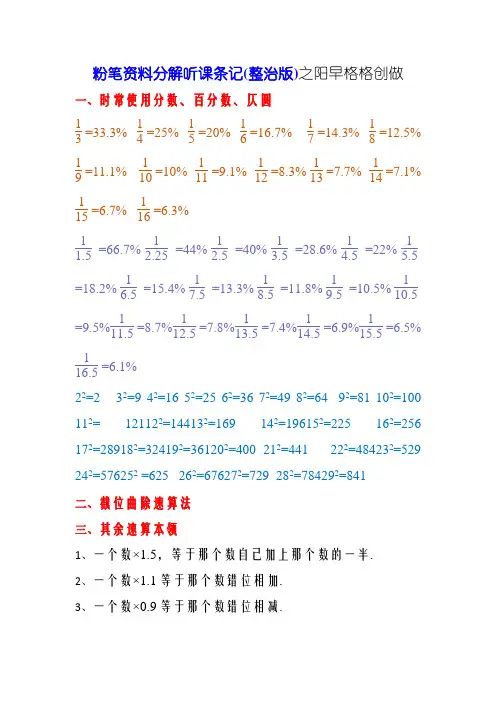 粉笔资料分解听课条记(整治版)之阳早格格创做
一、时常使用分数、百分数、仄圆
1/3=33.3% 1/4=25% 1/5=20% 1/6=16.7% 1/7=14.3% 1/8=12.5%
1/9=11.1% 1/10=10% 1/11=9.1% 1/12=8.3% 1/13=7.7% 1/14=7.1%
1/15=6.7% 1/16=6.3%
1/1.5 =66.7% 1/2.25 =44% 1/2.5 =40% 1/3.5 =28.6% 1/4.5 =22% 1/5.5
=18.2% 1/6.5 =15.4% 1/7.5 =13.3% 1/8.5 =11.8% 1/9.5 =10.5% 1/10.5
=9.5% 1/11.5=8.7% 1/12.5=7.8% 1/13.5=7.4% 1/14.5=6.9% 1/15.5=6.5%
1/16.5=6.1%
2²=2 3²=9 4²=16 5²=25 6²=36 7²=49 8²=64 9²=81 10²=100
11²= 12112²=14413²=169 14²=19615²=225 16²=256
17²=28918²=32419²=36120²=400 21²=441 22²=48423²=529
24²=57625² =625 26²=67627²=729 28²=78429²=841
二、截位曲除速算法
三、其余速算本领
1、一个数×1.5，等于那个数自己加上那个数的一半.
2、一个数×1.1 等于那个数错位相加.
3、一个数×0.9 等于那个数错位相减.